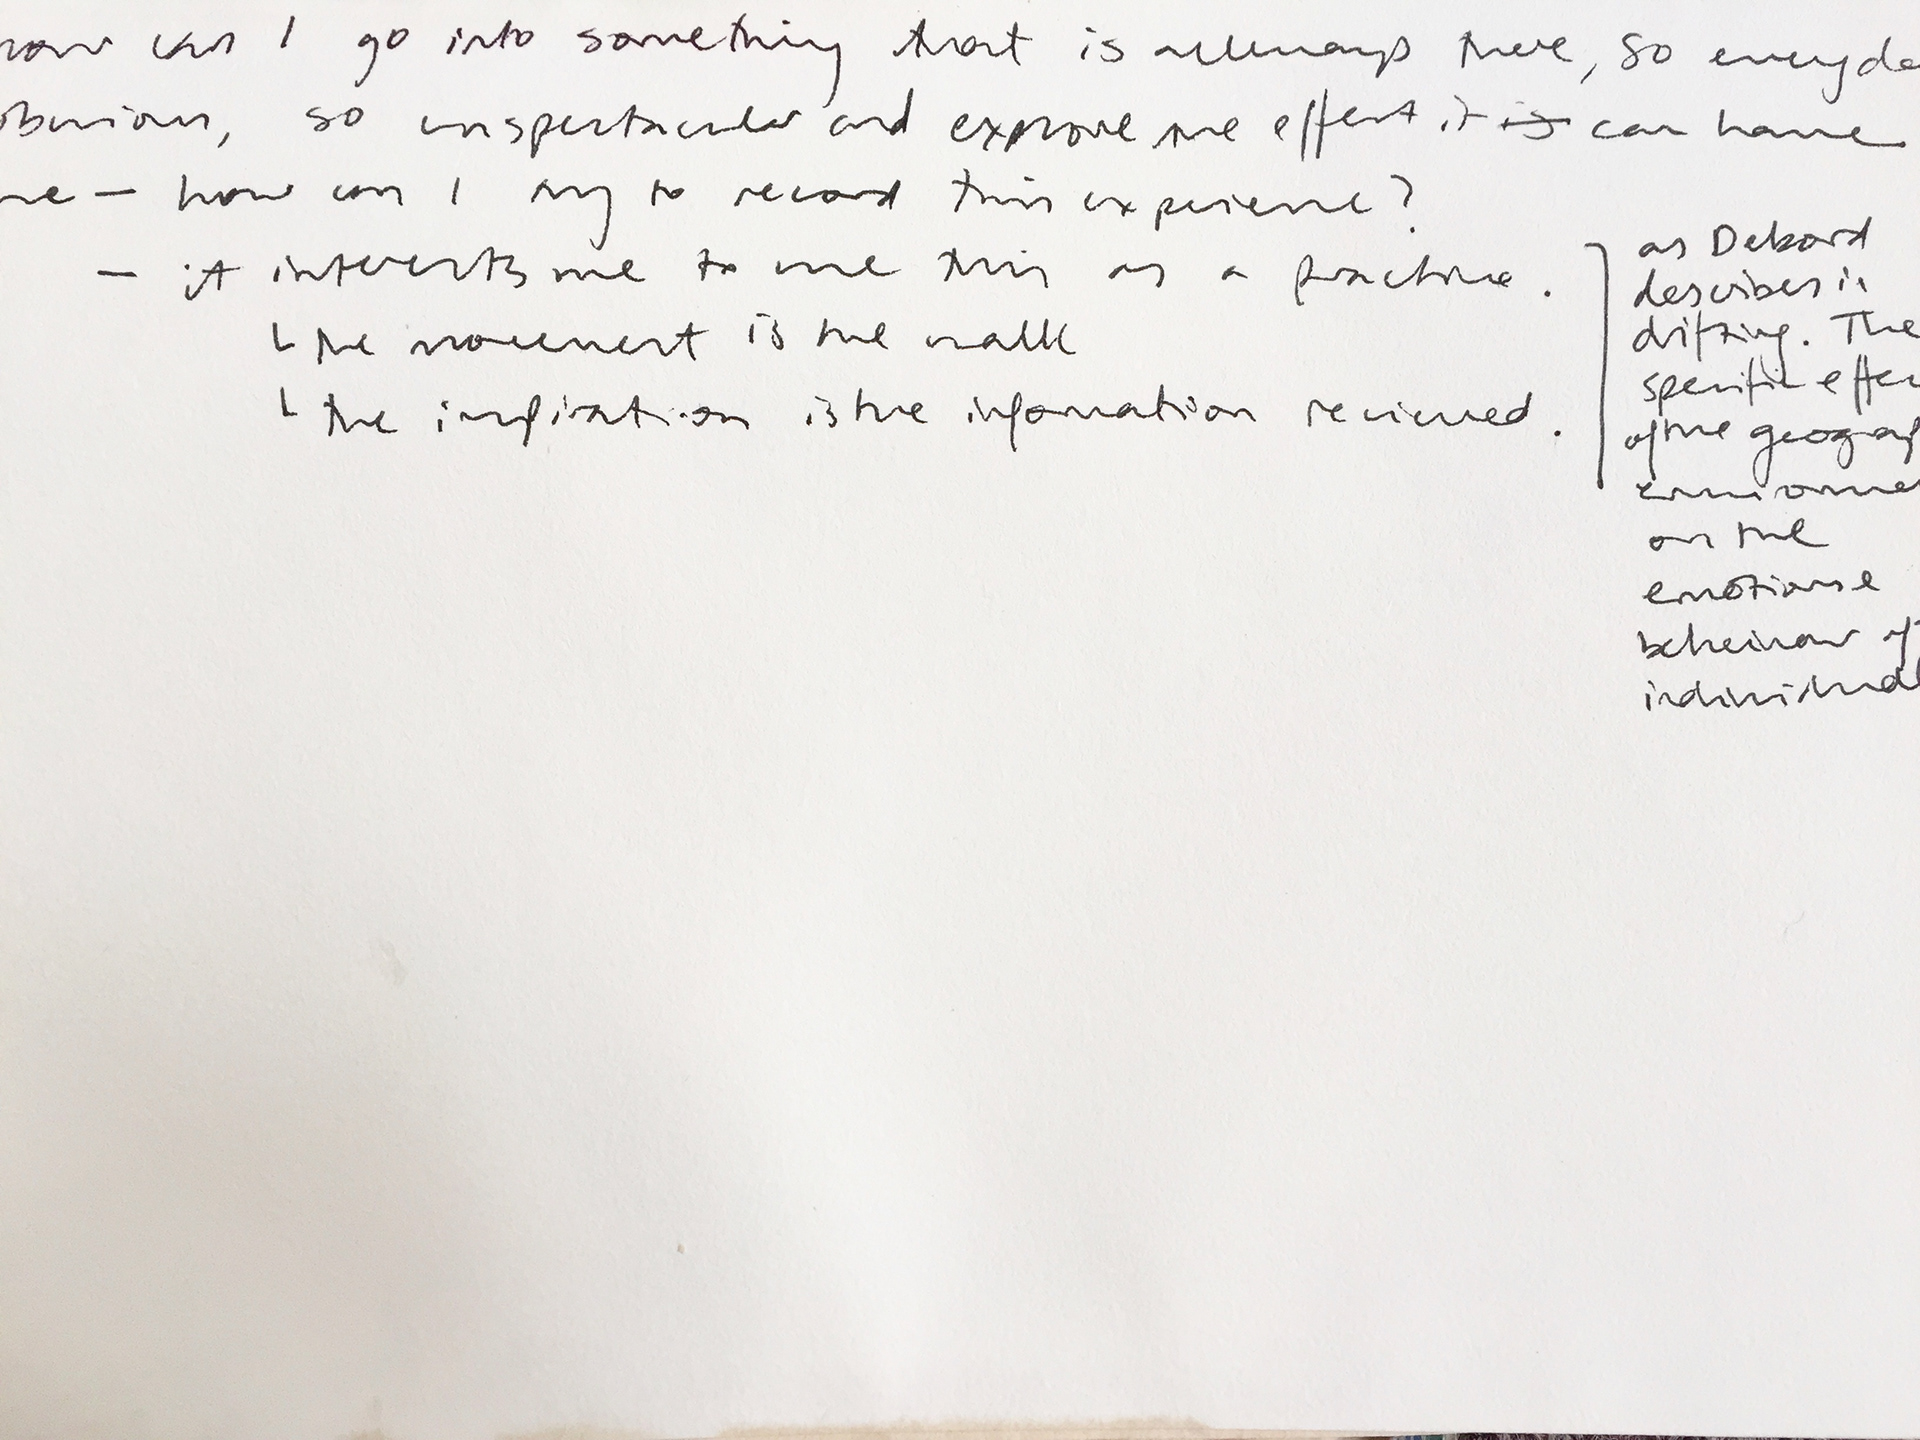 how can I go into something that is allways there, so everyda
obvious, so unspectacular and explore the effect it is can have
me – how can I try to record this experience?
– it interests me to use this as a practice.
the movement is the walk
the inspiration is the information recieved.
as Debord
describes in
drifting. The
specific effec
of the geograp
environme
on the
emotions
behaviour of
individual